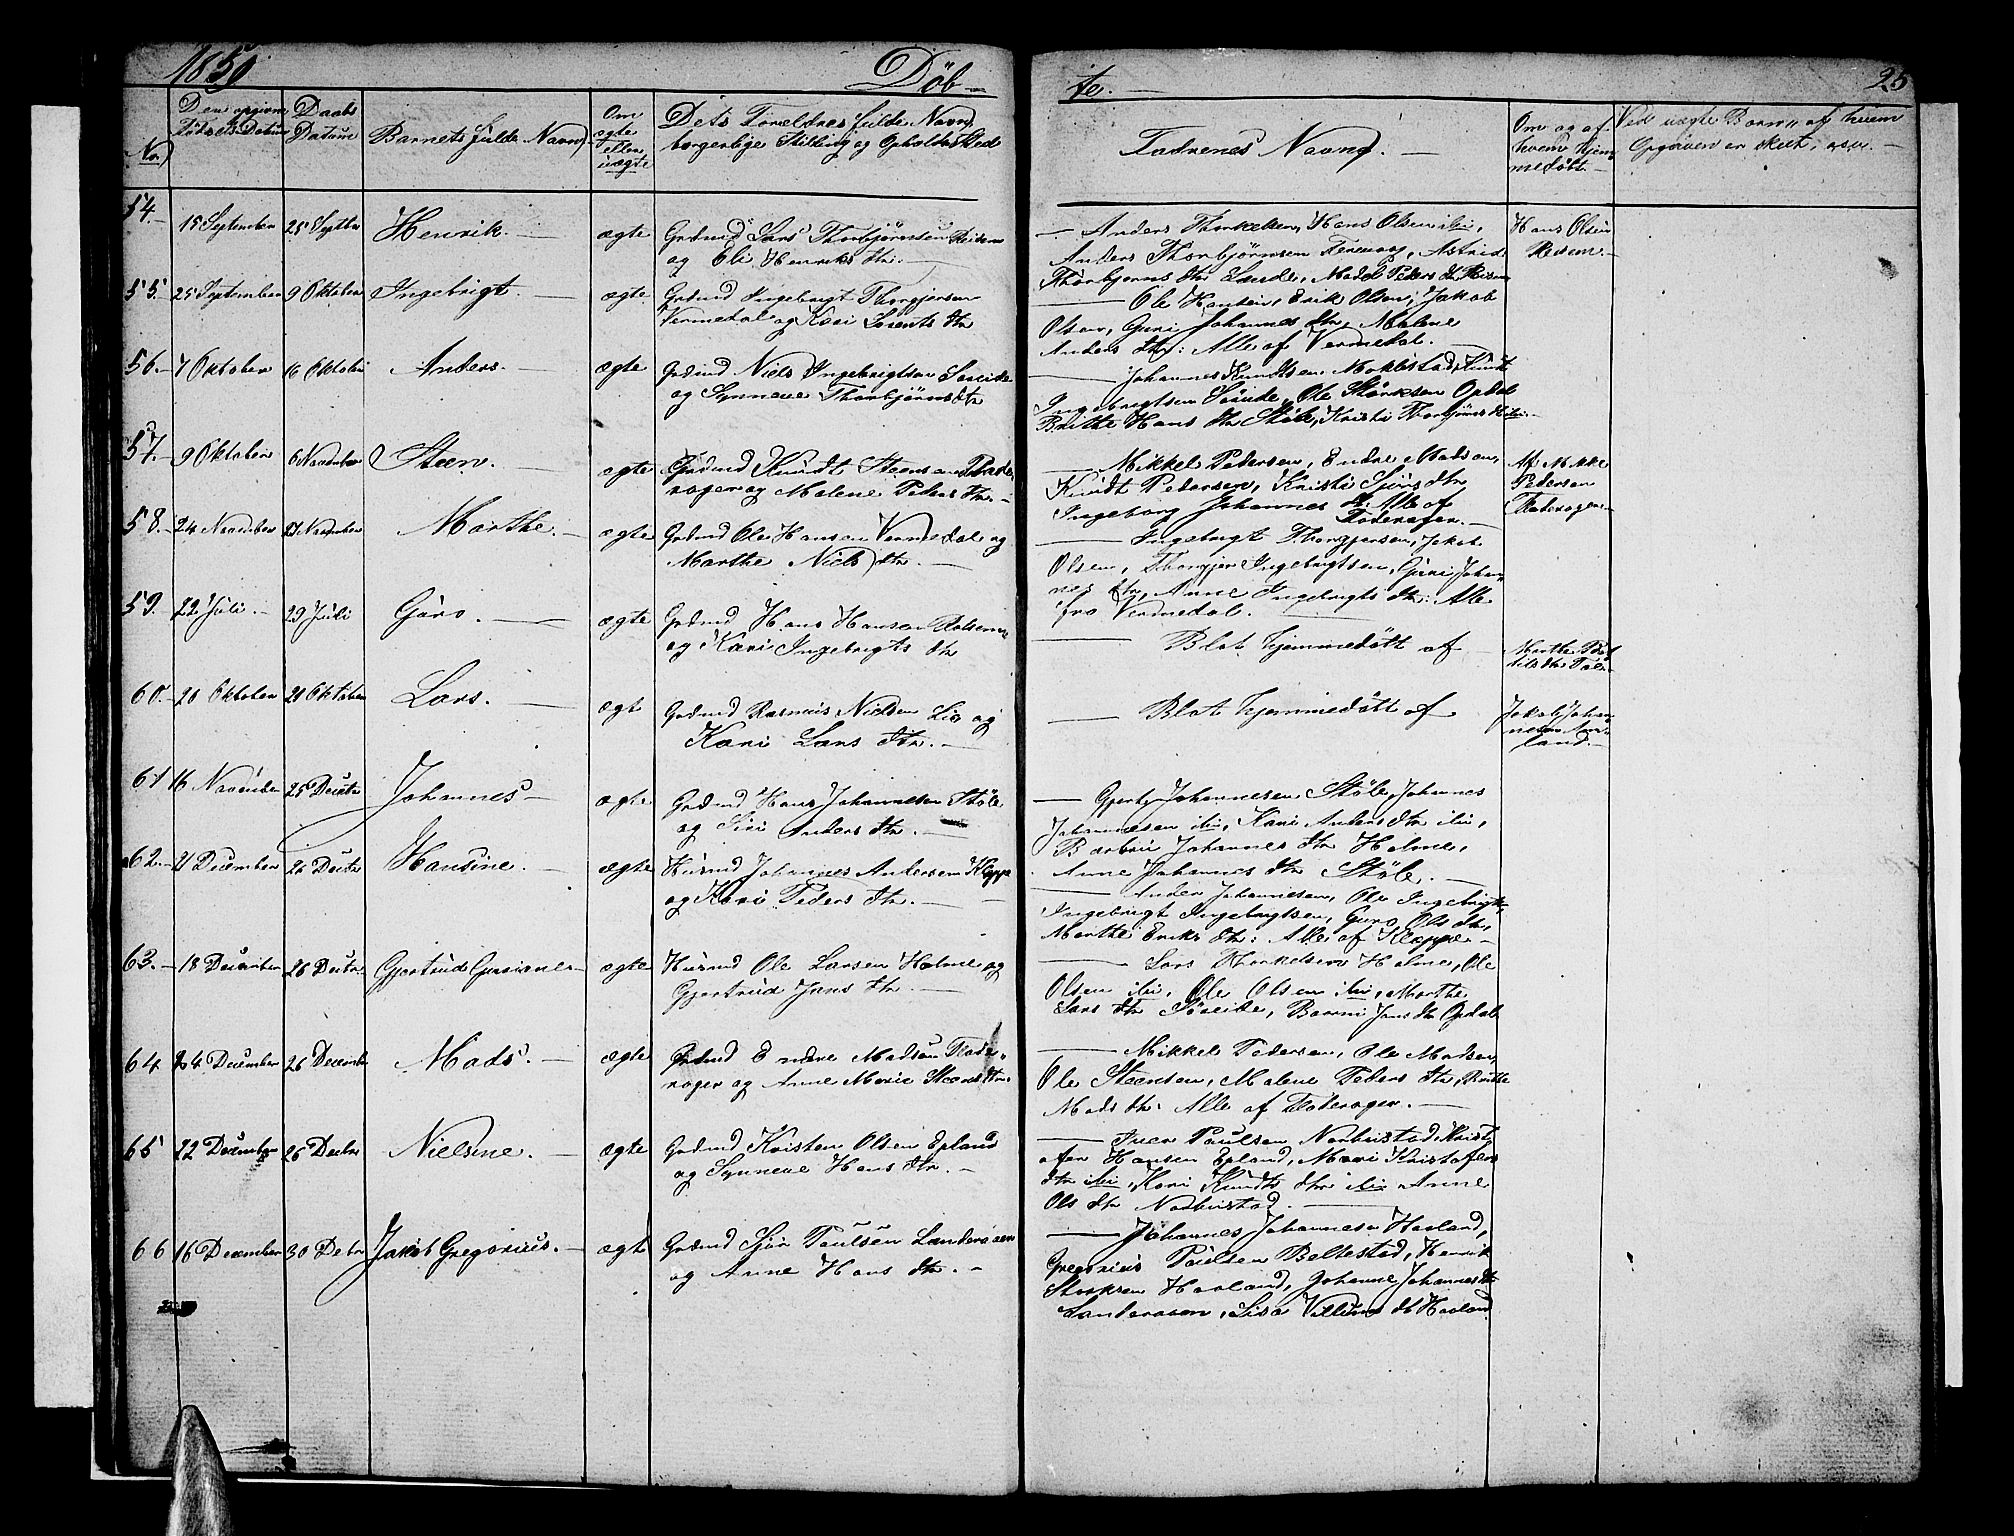 1850 Döb-
te.- 25
No Den opgivne Födsels Datum Daabs Datum Barnets fulde Navn Om ægte eller uægte Dets Forældres fulde Navn, borgerlige Stilling og Opholds Sted
Faddrenes Navne. - Om og af hvem hjemmedöbt - Ved uægte Börn, af hvem Opgiven er skeet, osv. -
54. 15 September 25 Septbr Henrik. - ægte Grdmd Lars Thorbjörnsen Reisen
og Eli Henriks dtr. -
- Anders Thorkelsen, Hans Olsen ibi, Hans Olsen
Anders Thorbjörnsen Astrid Reisen. -
Thorbjörns dtr Lande, Madel Peders dtr Reisen
55. 25 September 9 Oktober Ingebrigt. - ægte Grdmd Ingebrigt Thorgjersen
Vermedal og Kari Lorents dtr
- Ole Hansen, Erik Olsen, Jakob
Olsen, Guri Johannes dtr, Malene
Anders dtr: Alle af Vermedal. -
56. 7 Oktober 16 Oktober Anders. - ægte Grdmd Niels Ingebrigtsen Söreide
og Synneve Thorbjörnsdtr
- Johannes Knudtsen Moklestad, Knudt
Ingebrigtsen Söreide, Ole Störksen Opdal
Brithe Hans dtr Stöle, Kristi Thorbjörns dtr ibi. -
57. 9 Oktober 6 November Steen. - ægte Grdmd Knudt Steensen Flade-
rager og Malene Peders dtr. -
- Mikkel Pedersen, Endre Madsen, Af Mikkel
Knudt Pedersen, Kristi Sjurs dtr Pedersen
Ingeborg Johannes dtr: Alle af Fladerager. -
Fladerager. -
58. - 24 November 27 November Marthe. - ægte Grdmd Ole Hansen Vermedal og
Marthe Niels dtr. -
- Ingebrigt Thorgjersen, Jakob
Olsen, Thorgjer Ingebrigtsen, Guri Johan-
nes dtr, Anne Ingebrigts dtr: Alle
fra Vermedal. -
59. 22 Juli. - 29 Juli Guro. - ægte Grdmd Hans Hansen
og Kari Ingebrigts dtr
- Blot hjemmedöbt af Marthe
60. - 20 Oktober 20 Oktober Lars. - ægte Grdmd Rasmus Nielsen Lio og
Kari Lars dtr. -
- Blot hjemmedöbt af Jakob Johan-
nesen
land. -
61 16 November 25 Decbr Johannes - ægte Grdmd Hans Johannesen Stöle
og Siri Anders dtr. -
- Gjert Johannesen Stöle, Johannes
Johannesen ibi, Kari Anders dtr ibi,
Barbro Johannes dtr Holme,
Anne Johannes dtr Stöle. -
62. - 21 December 26 Decbr Hansine. - ægte Husmd Johannes Andersen Kleppe
og Kari Peders dtr. -
- Anders Johannesen, Ole Ingebrigts-
Ingebrigt Ingebrigtsen, Guro Ols dtr,
Marthe Eriks dtr: Alle af Kleppe -
63. - 18 December 26 Decbr Gjertrud Gurine - ægte Husmd Ole Larsen Holme og
Gjertrud Jans dtr. -
- Lars Thorkelsen Holme, Ole
Olsen ibi, Ole Olsen ibi, Marthe
Lars dtr Söreide, Barni Jans dtr Opdal
64 24 December 26 Decembr Mads. - ægte Grdmd Endre Madsen Flade-
rager og Anne Marie Steens dtr.
- Mikkel Pedersen, Ole Madsen
Ole Steensen, Malene Peders dtr, Brithe
Mads dtr: Alle af Fladerager. -
65 22 December 26 Decbr Nielsine. - ægte Grdmd Kristen Olsen Epland
og Synneve Hans dtr. -
- Iver Paulsen Norbustad, Krist-
ofer Hansen Epland, Mari Kristofers
dtr ibi, Kari Knudts dtr ibi Anne
Ols dtr Norbustad. -
66 16 December 30 Decbr Jakob Gregorius. - ægte Grdmd Sjur Paulsen Landeraaen
og Anne Hans dtr. -
- Johannes Johannesen Havland,
Gregorius Paulsen Beltestad, Henrik
Storksen Havland, Johanne Johannes dtr
Landeraaen, Lisa Villums dtr Havland.